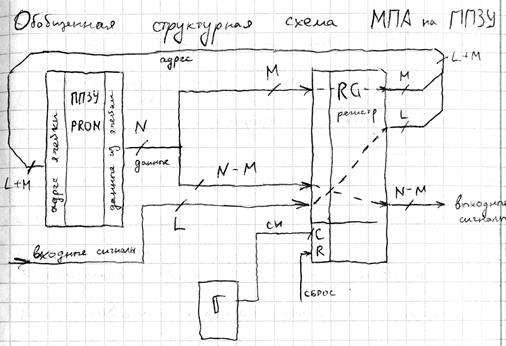 Обобщенная структурная схема МПА на ППЗУ
адрес
L+M
M
M
ППЗУ
PROM
RG
регистр
L
адрес ячейки
данные из ячейки
N
данные
L+M
N-M
N-M
L
выходные сигналы
входные сигналы
СИ
C
R
Г
СБРОС